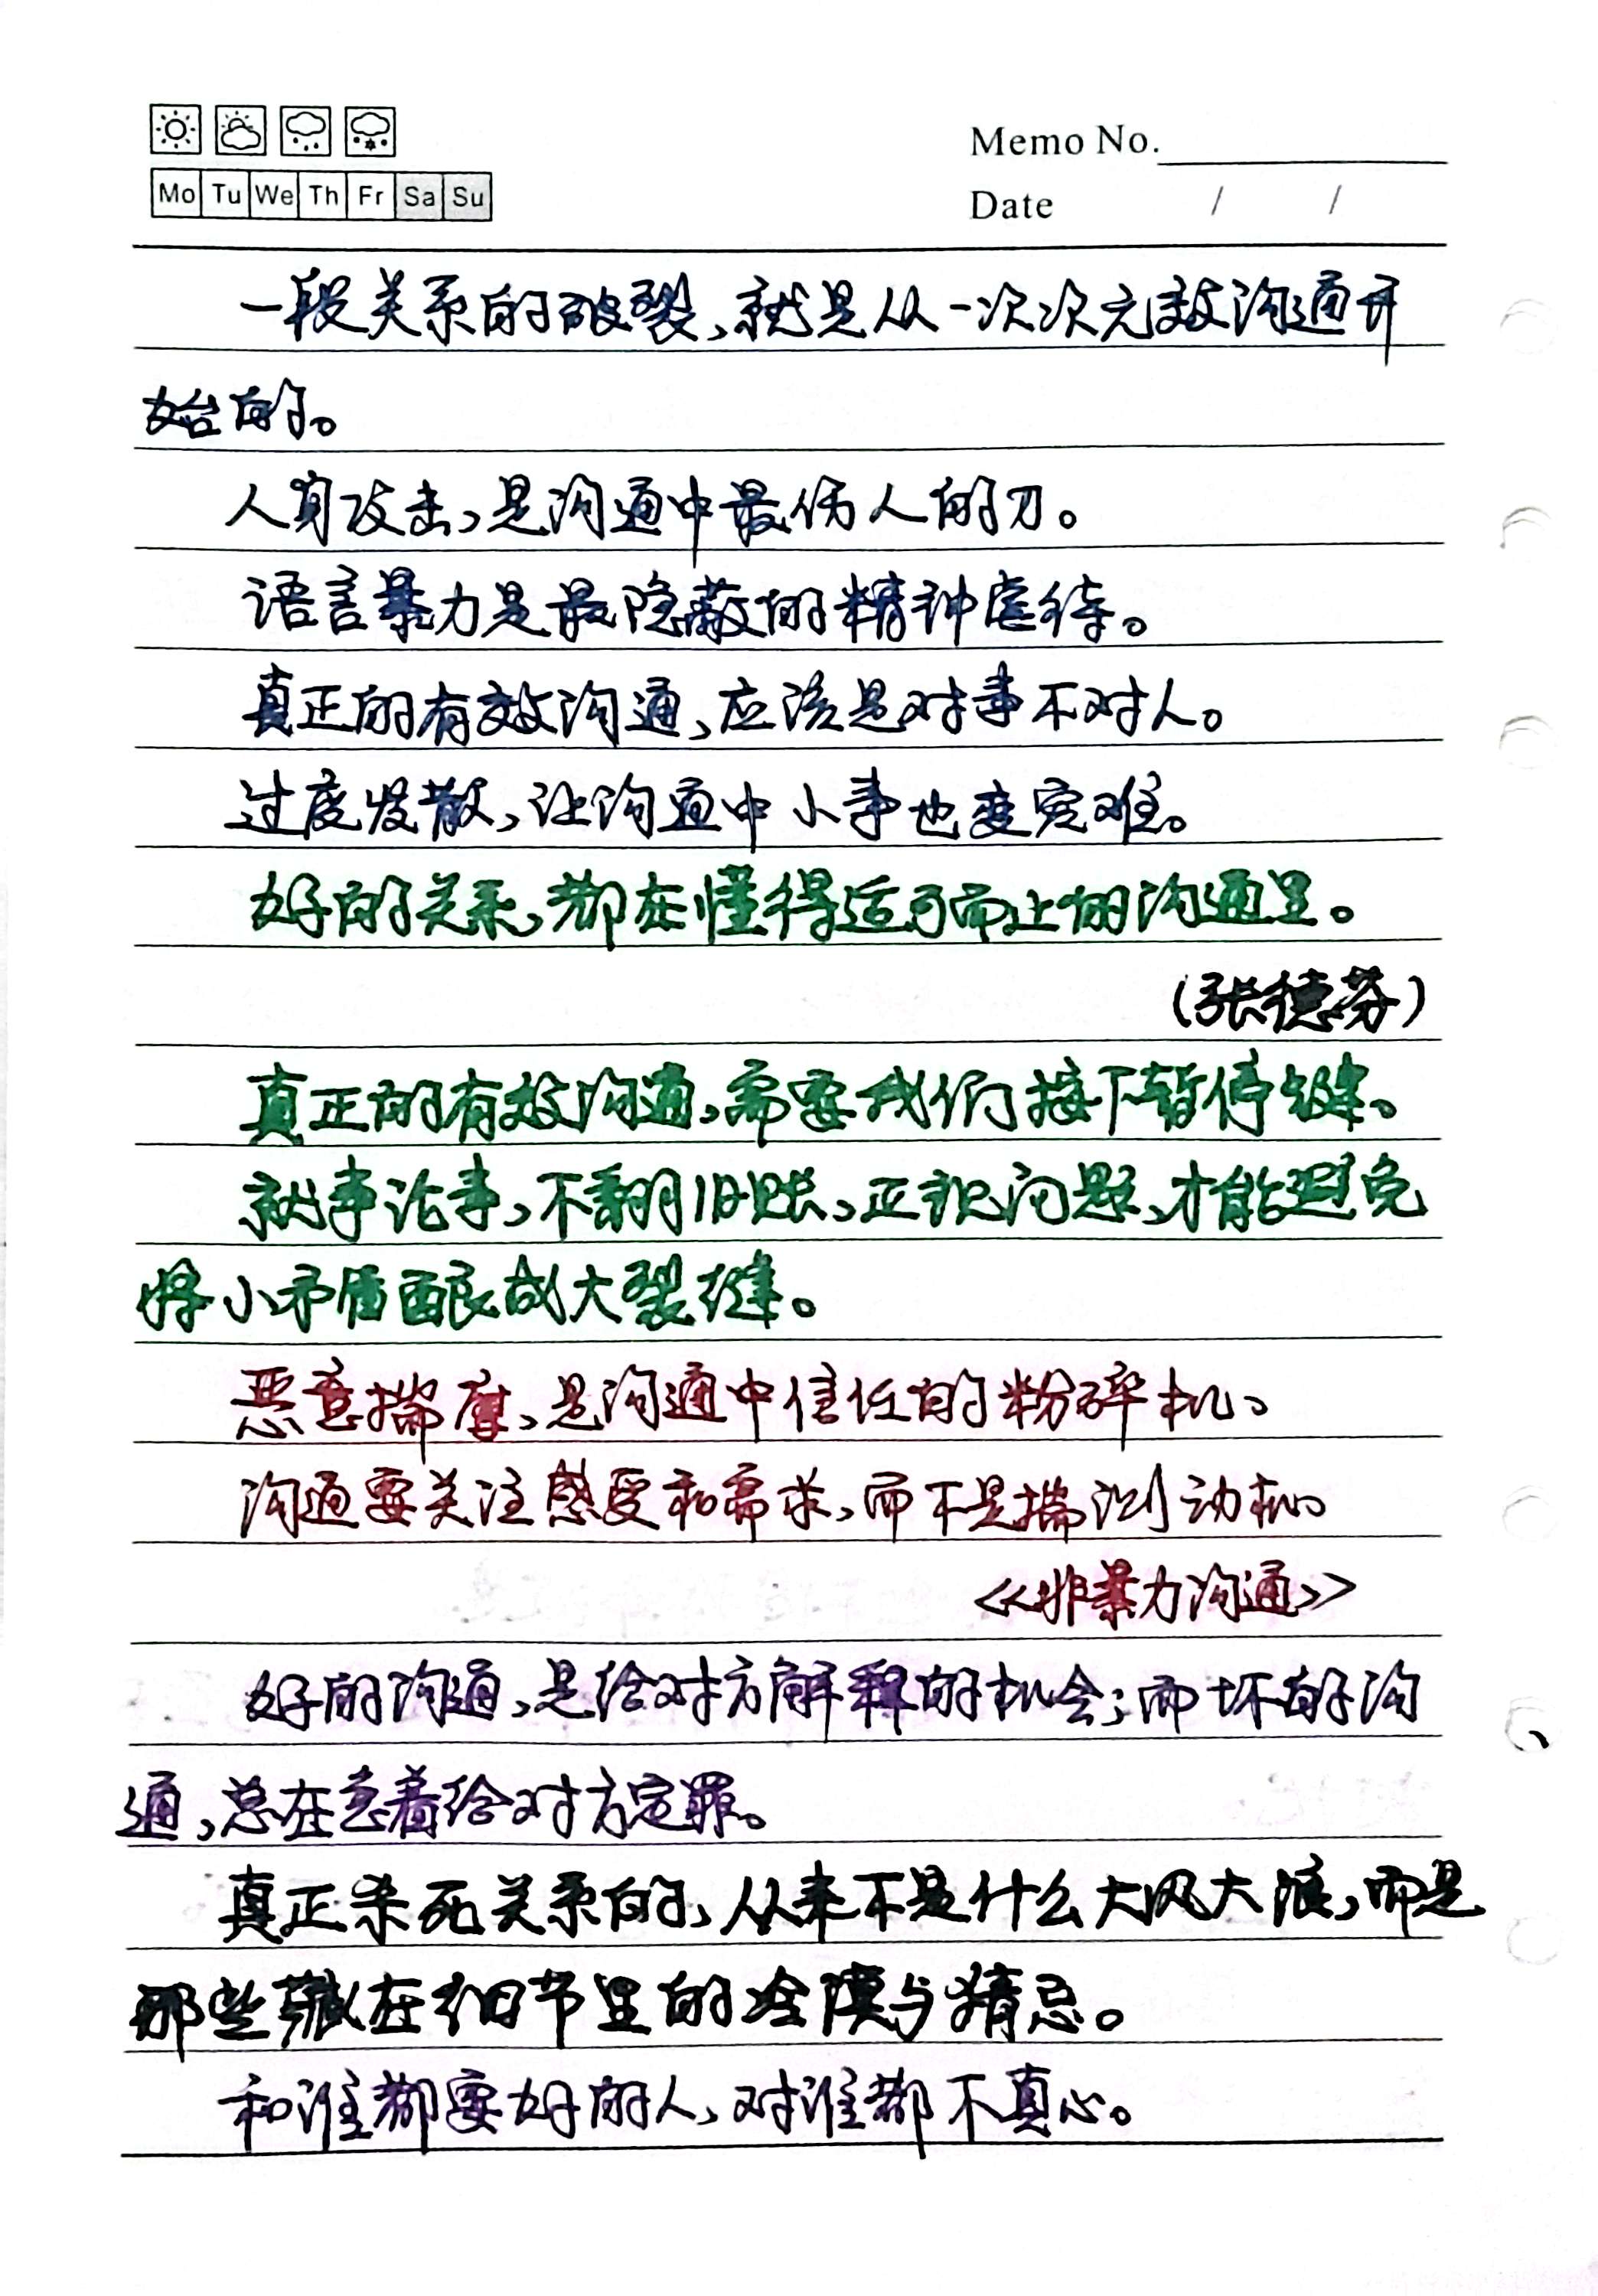 Memo No.
Mo Tu We Th Fr Sa Su
Date / /
一段关系的破裂,就是从一次次无效沟通开
始的。
人身攻击,是沟通中最伤人的刀。
语言暴力是最隐蔽的精神虐待。
真正的有效沟通,应该是对事不对人。
过度发散,让沟通中小事也变灾难。
好的关系,都在懂得适可而止的沟通里。
(张德芬)
真正的有效沟通,需要我们按下暂停键、
就事论事,不翻旧账,正视问题,才能避免
将小矛盾酿成大裂缝。
恶意揣摩,是沟通中信任的粉碎机、
沟通要关注感受和需求,而不是揣测动机。
<<非暴力沟通>>
好的沟通,是给对方解释的机会;而坏的沟
通,总在急着给对方定罪。
真正杀死关系的,从来不是什么大风大浪,而是
那些藏在细节里的冷漠与猜忌。
和谁都要好的人,对谁都不真心。